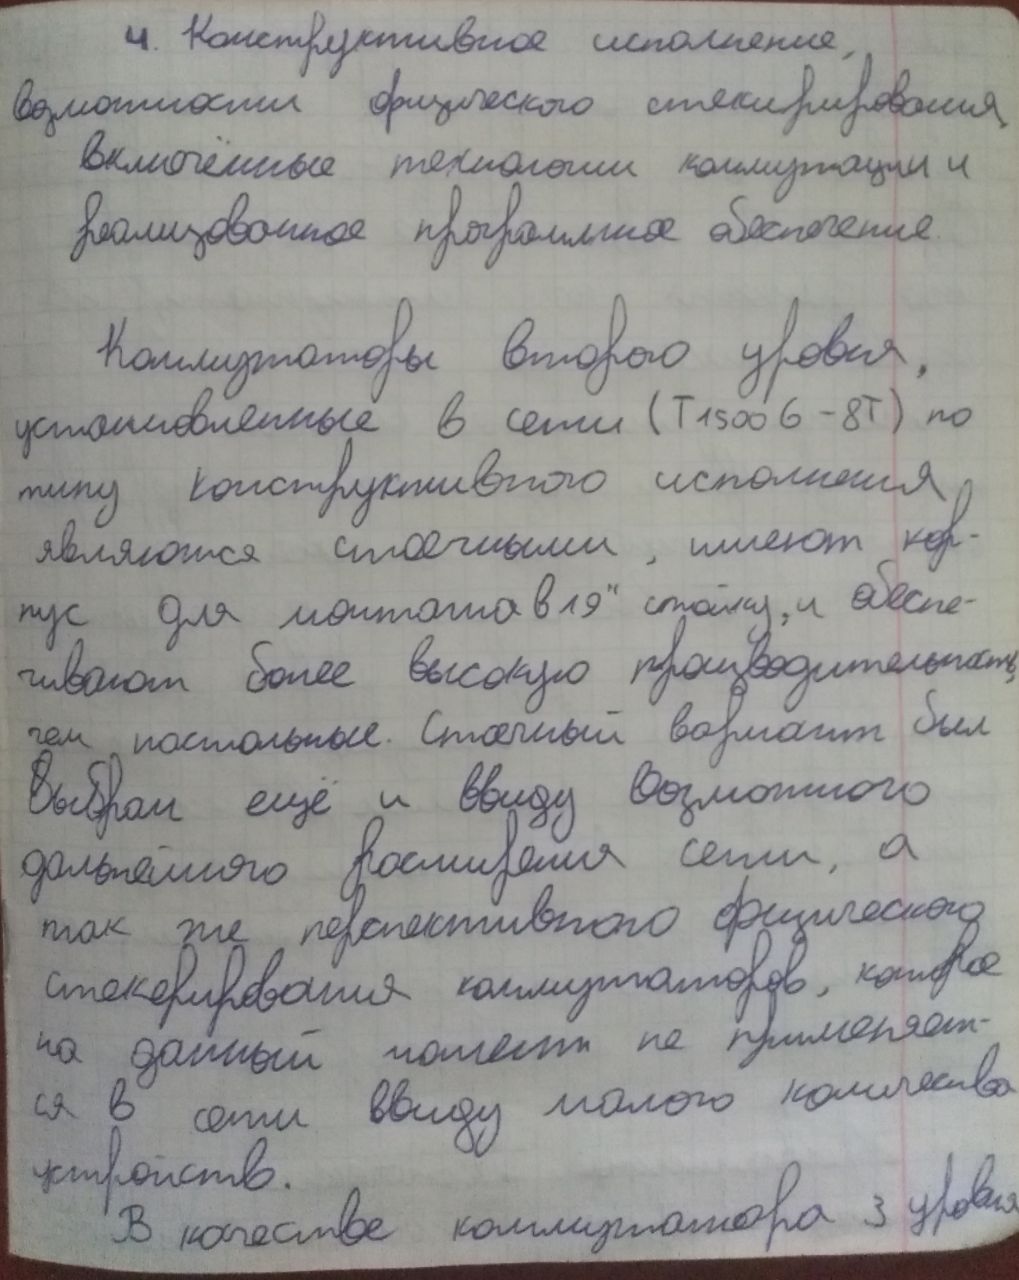 4. Конструктивное исполнение,
возможности физического стекирирования,
включённые технологии коммутации и
реализованное программное обеспечение.
Коммутаторы второго уровня,
установленные в сети (T1500G-8T) по
типу конструктивного исполнения
являются стоечными, имеют кор-
пус для монтажа в 19" стойку, и обеспе-
чивают более высокую производительность,
чем настольные. Стоечный вариант был
выбран ещё и ввиду возможного
дальнейшего расширения сети, а
так же перспективного физического
стекерирования коммутаторов, которое
на данный момент не применяет-
ся в сети ввиду малого количества
устройств.
В качестве коммутатора 3 уровня